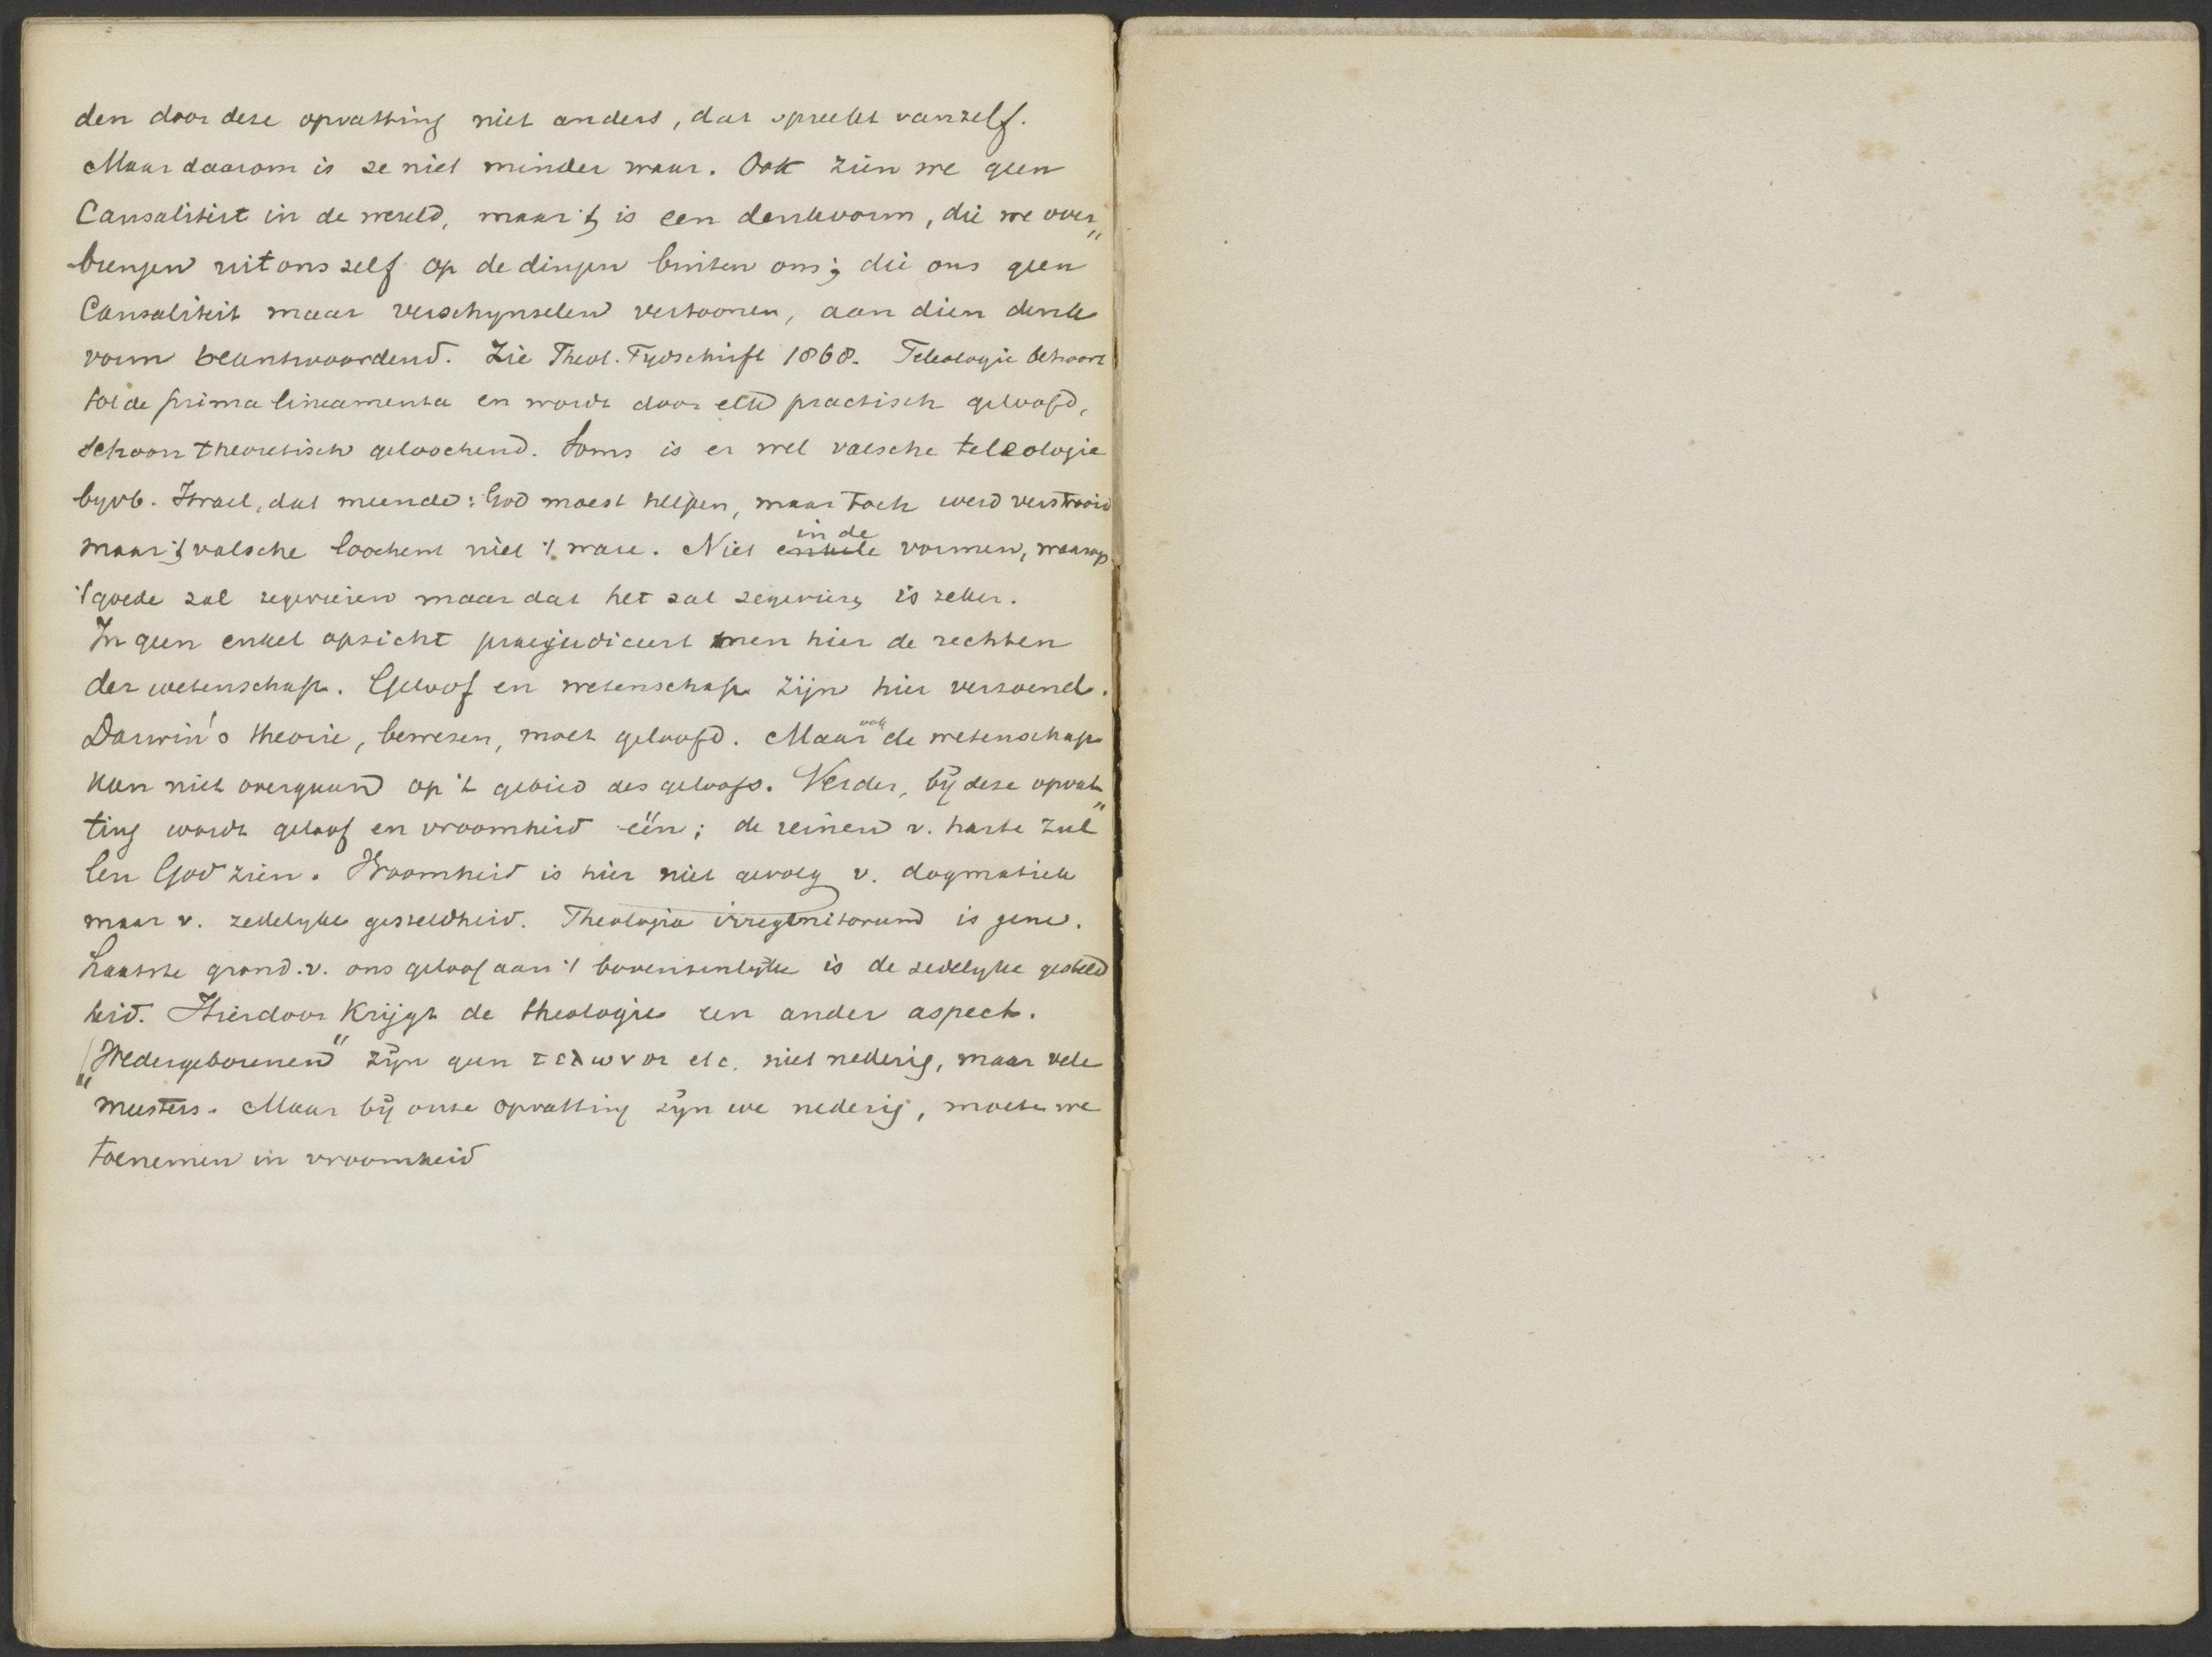 den door deze opvatting niet anders, dat spreekt vanzelf.
Maar daarom is ze niet minder waar. Ook zien we geen
Causaliteit in de wereld, maar 't is een denkvorm, die we over„
brengen uit ons zelf op de dingen buiten ons; die ons geen
Causaliteit maar verschynselen vertoonen, aan dien denk
vorm beantwoordend. Zie Theol. Tydschrift 1868. Teleologie behoort
tot de prima lineamenta en wordt door elk practisch geloofd,
schoon theoretisch geloochend. Soms is er wel valsche teleologie
byvb. Israel, dat meende: God moest helpen, maar toch werd verstrooid
maar 't valsche loochent niet 't ware. Niet enkele in de vormen, waarop
't goede zal zegevieren maar dat het zal zegevieren is zeker.
In geen enkel opzicht praejudiceert men hier de rechten
der wetenschap. Geloof en wetenschap zijn hier verzoend.
Darwin's theorie, bewezen, moet geloofd. Maar ook de wetenschap
kan niet overgaan op 't gebied des geloofs. Verder, bij deze opvat„
ting wordt geloof en vroomheid één; de reinen v. harte zul
len God zien. Vroomheid is hier niet gevolg v. dogmatiek
maar v. zedelyke gesteldheid. Theologia irregenitorum is gene.
Laatste grond v. ons geloof aan 't bovenzinlijke is de zedelyke gesteld
heid. Hierdoor krijgt de theologie een ander aspect.
„Wedergeborenen" zijn geen τελωναι etc. niet nederig, maar vele
meesters. Maar bij onze opvatting zijn we nederig, moeten we
toenemen in vroomheid